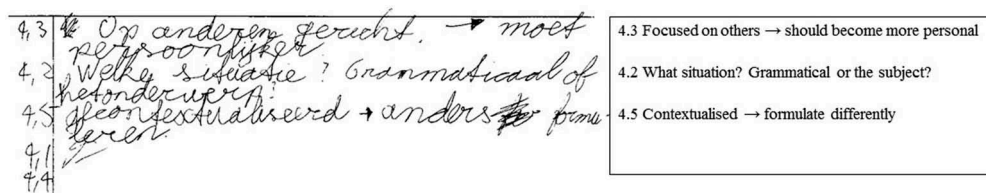 4,3 Op anderen gericht. → moet
persoonlijker
4,2 Welke situatie? Grammaticaal of
het onderwerp?
4,5 gecontextualiseerd → anders formu-
leren.
4,1
4,4
4.3 Focused on others → should become more personal
4.2 What situation? Grammatical or the subject?
4.5 Contextualised → formulate differently